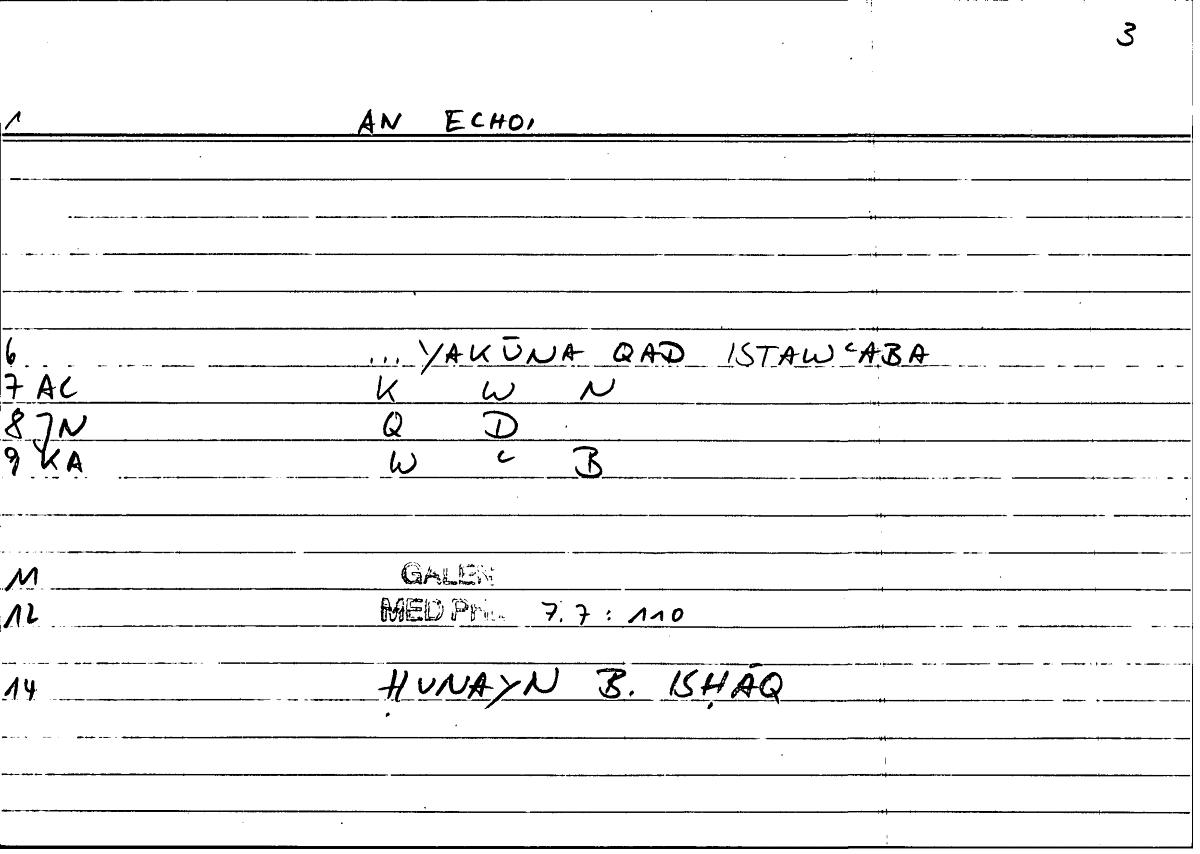 3
1 AN ECHOI
6 ... YAKŪNA QAD ISTAWʿABA
7 AC K W N
8 JN Q D
9 KA W ʿ B
11 GALEN
12 MED PHIL 7.7 : 110
14 ḤUNAYN B. ISḤĀQ